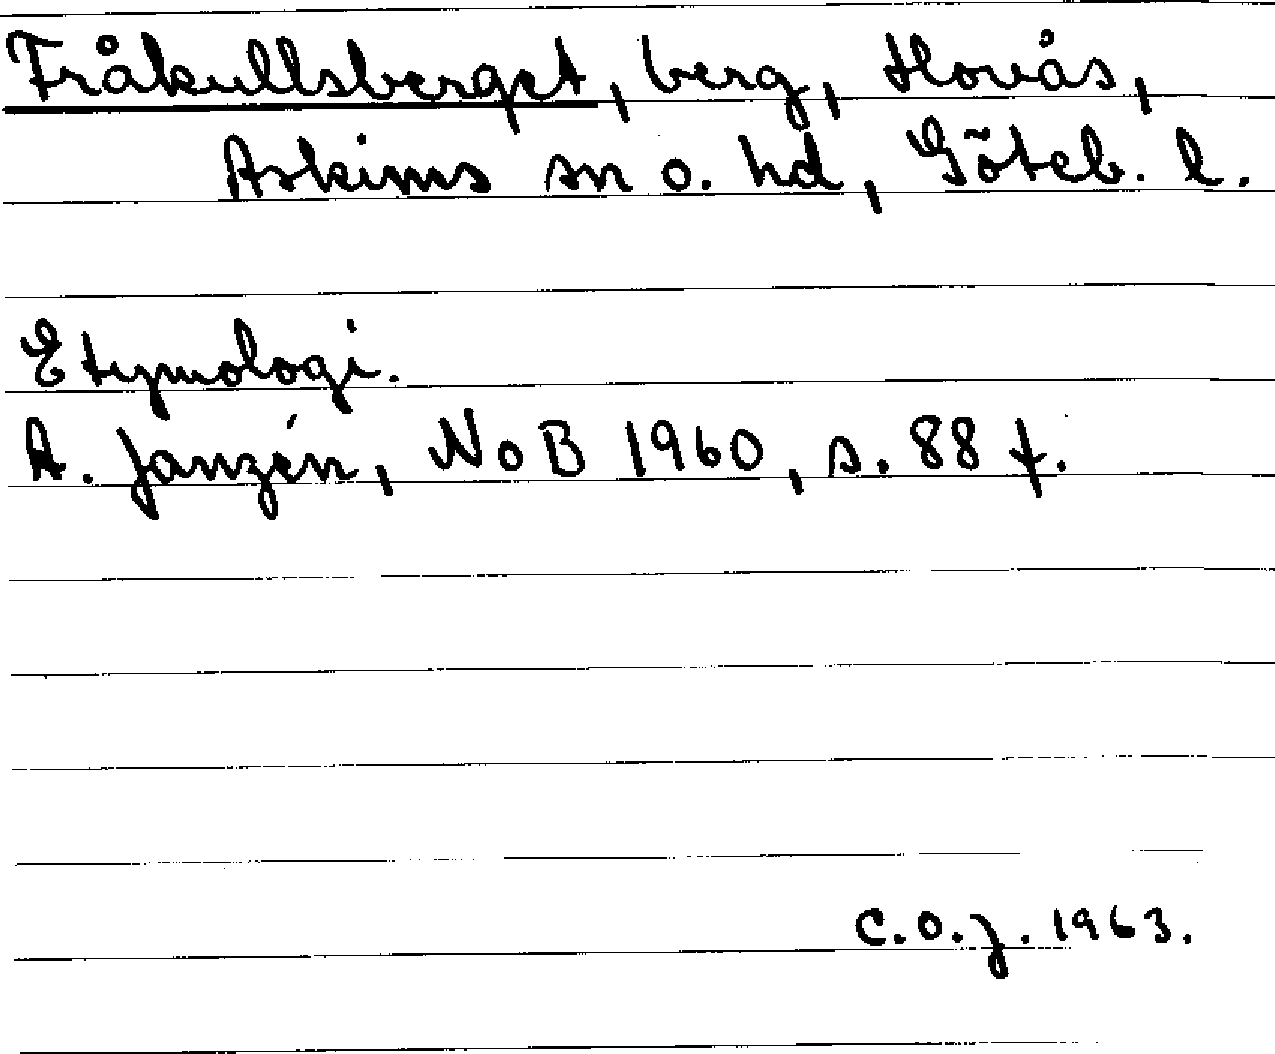 Fråkullsberget, berg, Hovås,
Askims sn o. hd, Göteb. l.
Etymologi.
A. Janzén, NoB 1960, s. 88 f.
C.O.J. 1963.